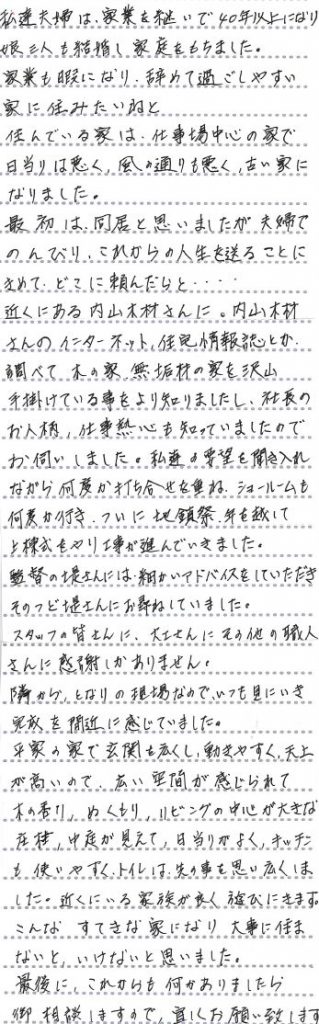 私達夫婦は、家業を継いで40年以上になり
娘三人も結婚し家庭をもちました。
家業も暇になり、辞めて過ごしやすい
家に住みたいねと
住んでいる家は、仕事場中心の家で
日当りは悪く、風の通りも悪く、古い家に
なりました。
最初は、同居と思いましたが夫婦で
のんびり、これからの人生を送ることに
きめて、どこに頼んだらと・・・・
近くにある内山木材さんに。内山木材
さんのインターネット、住宅情報誌とか、
調べて木の家、無垢材の家を沢山
手掛けている事をより知りましたし、社長の
お人柄、仕事熱心も知っていましたので
お伺いしました。私達の要望を聞き入れ
ながら何度か打ち合せを重ね、ショールームも
何度か行き、ついに地鎮祭、年を越して
上棟式をやり工事が進んでいきました。
監督の堤さんには細かいアドバイスをしていただき
そのつど堤さんにお尋ねしていました。
スタッフの皆さんに、大工さんにその他の職人
さんに感謝しかありません。
隣から、となりの現場なので、いつも見にいき
完成を間近に感じていました。
平家の家で玄関も広くし、動きやすく、天上
が高いので、広い空間が感じられて
木の香り、ぬくもり、リビングの中心が大きな
柱、中庭が見えて、日当りがよく、キッチン
も使いやすく、トイレは、先の事を思い広くしま
した。近くにいる家族が良く遊びにきます。
こんな すてきな家になり 大事に住ま
ないと、いけないと思いました。
最後に、これからも何かありましたら
御相談しますので、宜しくお願い致します